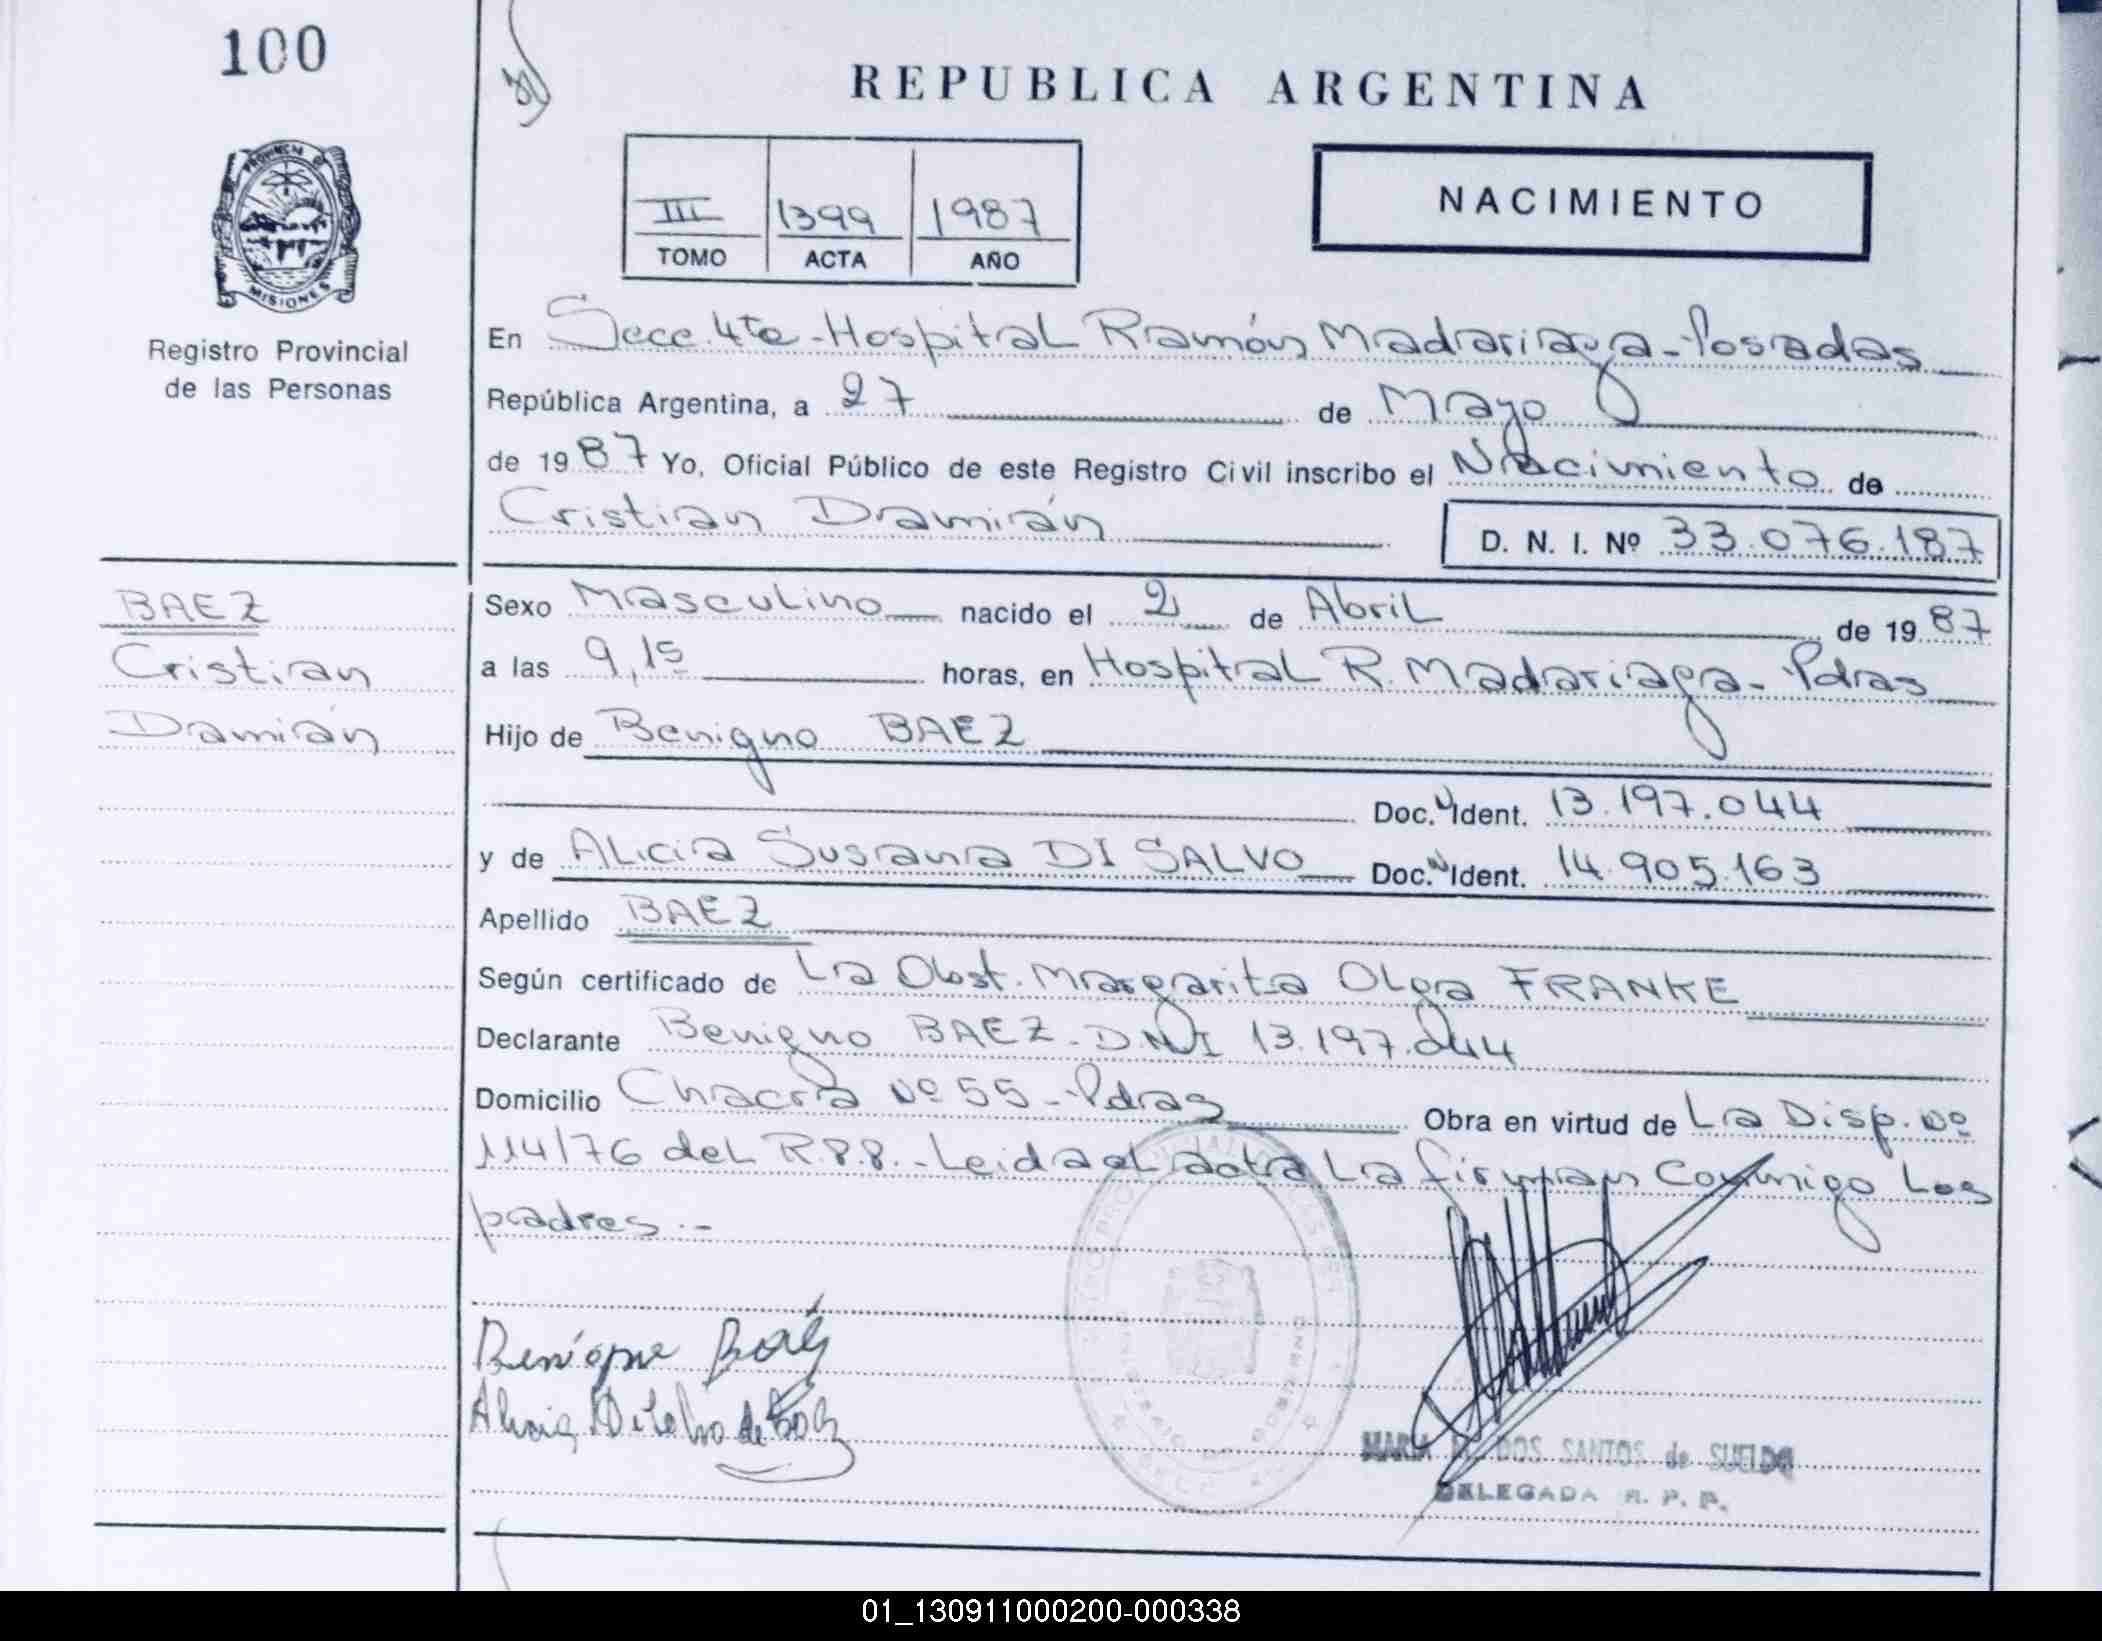 100
REPUBLICA ARGENTINA
PROVINCIA DE
MISIONES
Registro Provincial
de las Personas
III 1399 1987
TOMO ACTA AÑO
NACIMIENTO
En Secc. 4ta - Hospital Ramón Madariaga - Posadas
República Argentina, a 27 de Mayo
de 1987 Yo, Oficial Público de este Registro Civil inscribo el Nacimiento de
Cristian Damián
D. N. I. Nº 33.076.187
BAEZ
Cristian
Damián
Sexo Masculino nacido el 2 de Abril de 1987
a las 9,15 horas, en Hospital R. Madariaga - Pdas
Hijo de Benigno BAEZ
Doc. N Ident. 13.197.044
y de Alicia Susana DI SALVO Doc. N Ident. 14.905.163
Apellido BAEZ
Según certificado de La Obst. Margarita Olga FRANKE
Declarante Benigno BAEZ - DNI 13.197.044
Domicilio Chacra Nº 55 - Pdas Obra en virtud de La Disp. Nº
114/76 del R.P.P. - Leida el acta La firman Conmigo Los
padres. -
Benigno Baez
Alicia Di Salvo de Baez
MARIA DOS SANTOS de SUELDO
DELEGADA R. P. P.
01_130911000200-000338